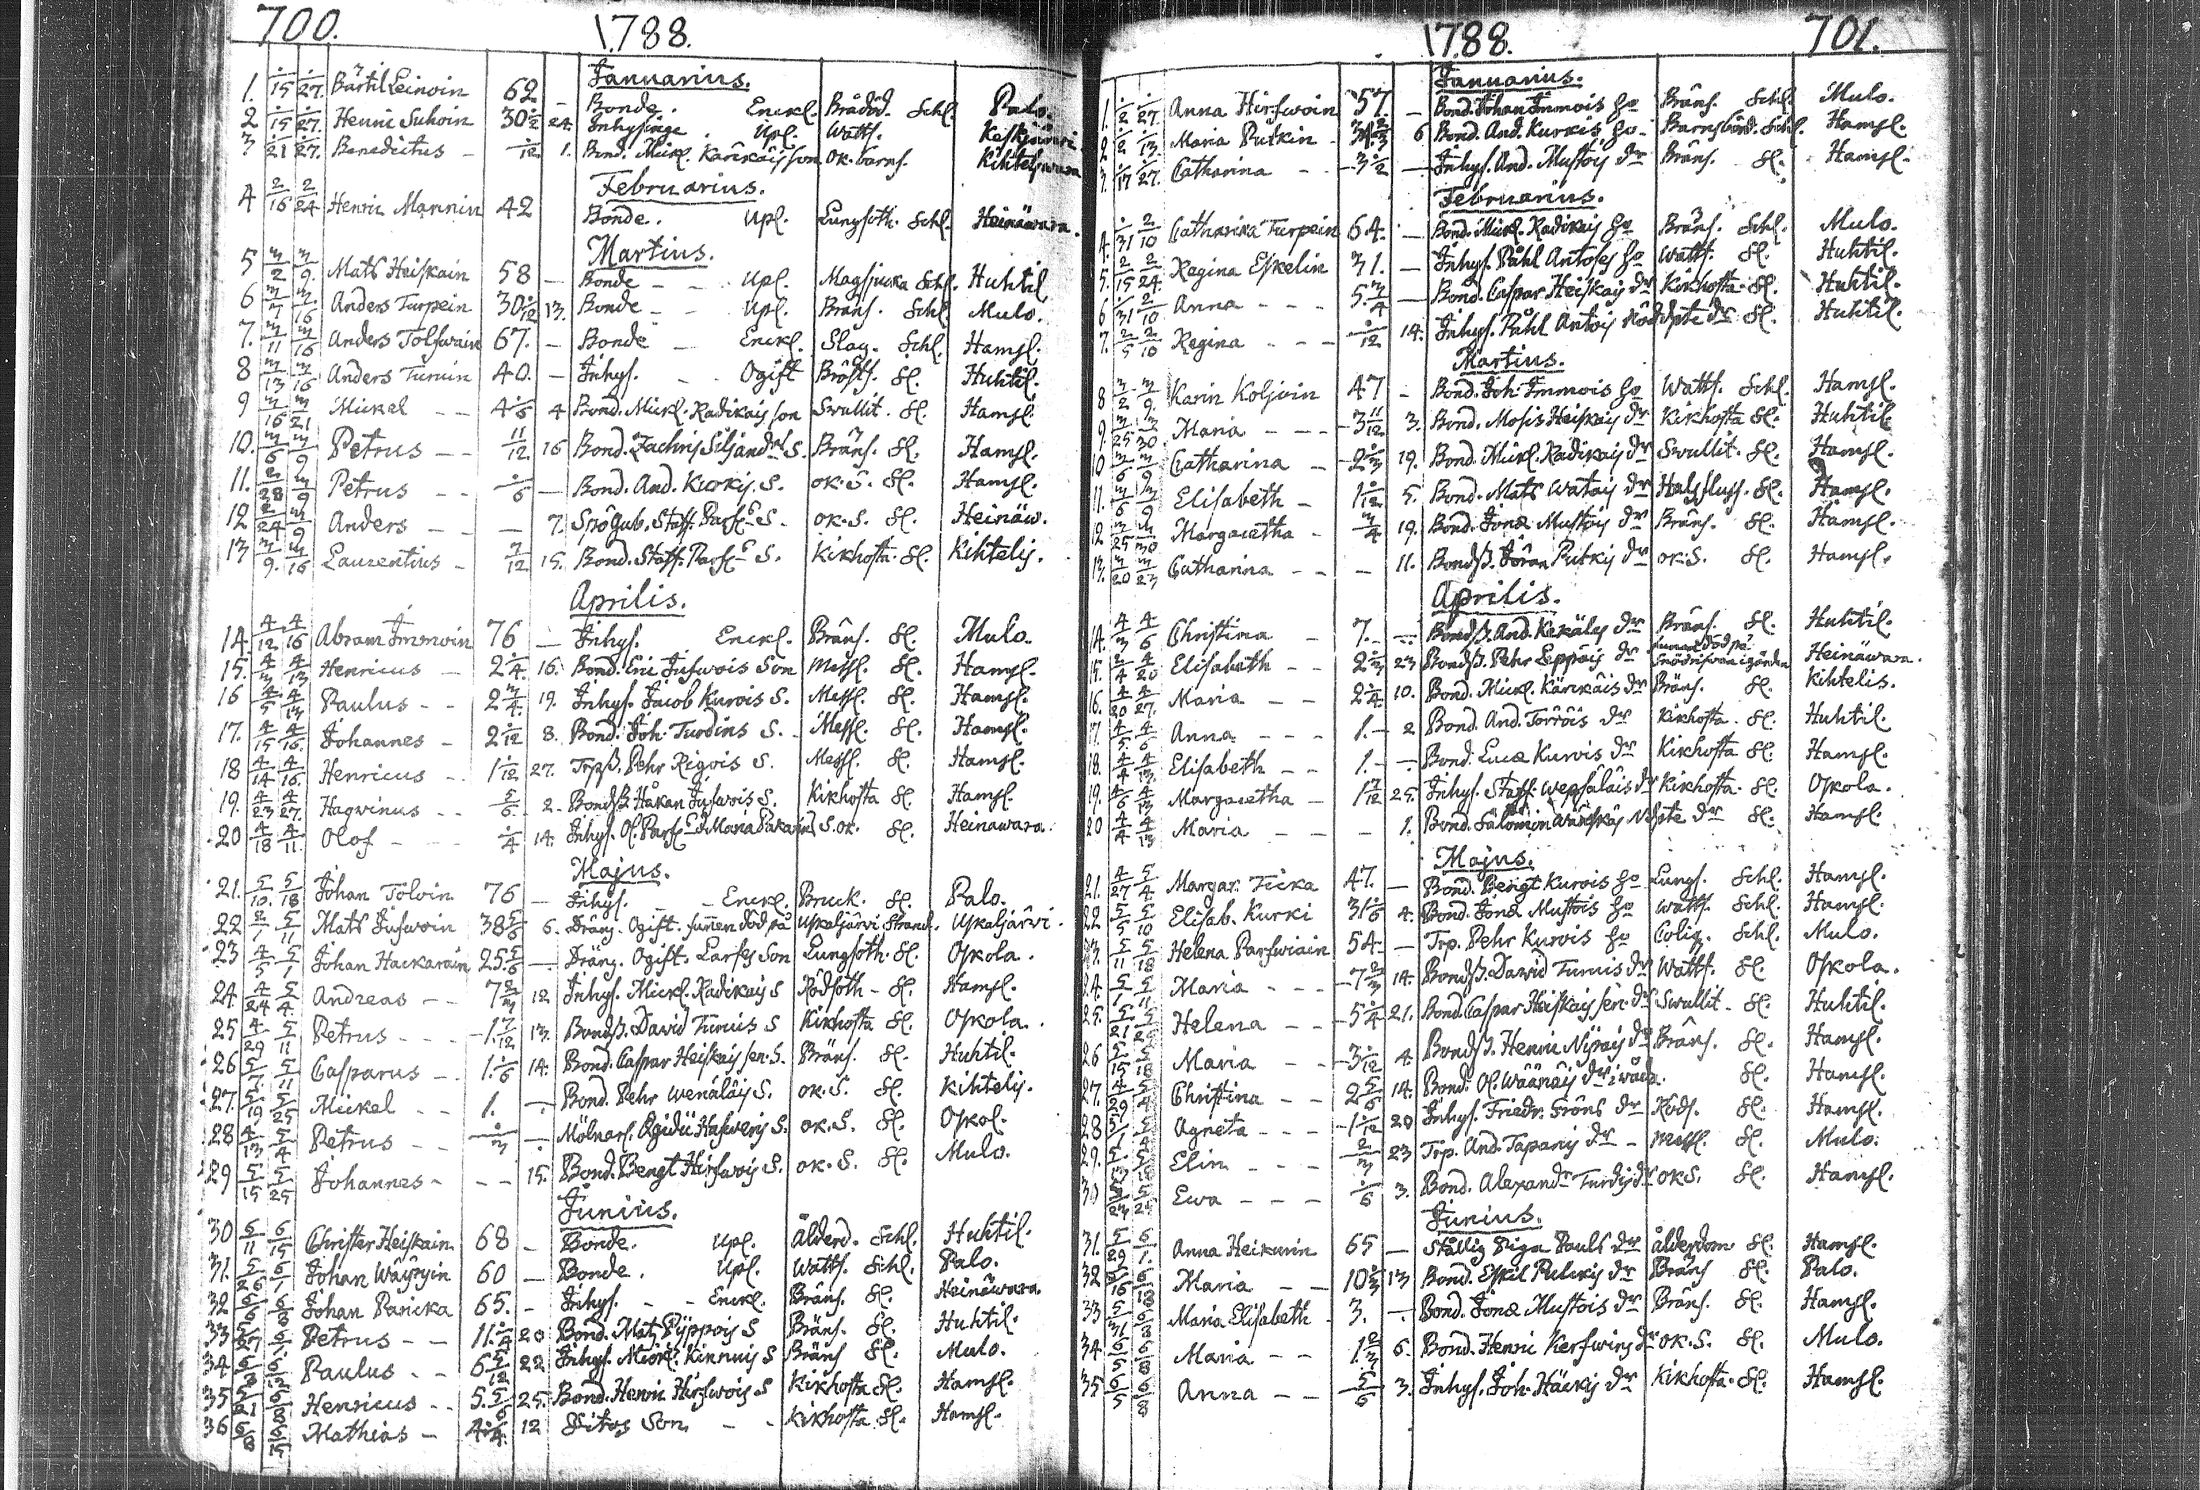 700. 1788.
Januarius.
1. 1/15 1/27. Bärtil Leinoin 62 – Bonde. Enckl. Bråddöd. Schl. Palo.
2 1/15 1/27. Henric Suhoin 30 1/2 24. Inhysinge. Upl. Watts. Keskjärvi
3 1/21 1/27. Benedictus – 1/12 1. Bond. Mick. Kärckäis son ok. barns. Kihtelswara
Februarius.
4 2/16 2/24 Henric Mannin 42 Bonde. Upl. Lungsoth. Schl. Heinäwara.
Martius.
5 3/2 3/9. Mats Heiskain 58 – Bonde – – Upl. Magsjuka Schl. Huhtil
6 3/7 3/16 Anders Turpein 30 1/12 13. Bonde – – Upl. Bräns. Schl Mulo.
7. 3/11 3/16 Anders Tolfwain 67. – Bonde – Enckl. Slag. Schl. Hamsl.
8 3/13 3/16 Anders Turuin 40. – Inhys. – – Ogift Bröstf. Sl. Huhtil.
9 3/16 3/21 Mickel – – 4 1/6 4 Bond. Mickl. Radikais son Swullit. Sl. Hamsl.
10. 3/6 3/9 Petrus – – 11/12 16 Bond. Zachris Siljand S. Bräns. Sl. Hamsl.
11. 2/28 3/9 Petrus – – 1/6 – Bond. And. Kurkis. S. ok. S. Sl. Hamsl.
12 2/24 3/9 Anders – – 7. Spögub. Staff. Parss S – ok. S. Sl. Heinäw.
13 3/9. 3/16 Laurentius – 7/12 15. Bond. Staff. Parss S. Kikhosta Sl. Kihtelis.
Aprilis.
14. 4/12 4/16 Abram Immoin 76 – Inhys. Enckl. Bräns. Sl. Mulo.
15. 4/3 4/13 Henricus – 2 1/4 16. Bond. Eric Jufwois Son Messl. Sl. Hamsl.
16 4/5 4/13 Paulus – – 2 3/4. 19. Inhys. Jacob Kurois S. Messl. Sl. Hamsl.
17. 4/15 4/16. Johannes – 2 1/12 8. Bond. Joh. Turdins S. – Messl. Sl. Hamsl.
18 4/14 4/16. Henricus – 1 1/12 27. Trpß. Pehr Rigois S. Messl. Sl. Hamsl.
19. 4/23 4/27. Haqvinus – – 5/6. 2. Bondß. Håkan Jufwois S. Kikhosta Sl. Hamsl.
20 4/18 4/11. Olof – – 1/4 14. Inhys. Ol. Parss & Maria Pakarin S. ok. Sl. Heinawara.
Majus.
21. 5/10. 5/18 Johan Tolvin 76 – Inhys. – Enckl. Bruck. Sl. Palo.
22 2/1 5/11 Mats Jufwoin 38 5/6 6. Dräng. Ogift. funnen död på Uskaljärvi Strand. Uskaljärvi.
23 4/5 5/1 Johan Hackarain 25. 5/6 – Dräng. Ogift. Larses Son Lungsoth. Sl. Oskola.
24 4/24 5/4 Andreas – – 7 2/3 12 Inhys. Mickl. Radikais S Rödsoth – Sl. Hamsl.
25 4/29 5/11 Petrus – – – 1 7/12 13. Bondß. David Turuis S Kikhosta Sl. Oskola.
26 5/7. 5/11 Casparus – 1. 1/6 14. Bond. Caspar Heiskais sen. S. Bräns. Sl. Huhtil.
27. 5/19 5/25 Mickel – – 1. – Bond. Pehr Wenäläis S. ok. S. Sl. Kihtelis.
28 4/13 5/4 Petrus – 1/3 – Mölnars. Ägidii Hafweris S. ok. S. Sl. Oskol.
29 5/15 5/25 Johannes – – – 15. Bond. Bengt Hirfwois S. ok. S. Sl. Mulo.
Junius.
30 5/11 6/15 Christer Heiskain 68 – Bonde. Upl. Ålderd. Schl. Huhtil.
31. 5/26 6/1 Johan Wäyryin 60 – Bonde. Upl. Watts. Schl. Palo.
32 6/6 6/8 Johan Pancka 65. – Inhys. – – Enckl. Bräns. Sl. Heinäwara.
33 5/27 6/1. Petrus – – 11. 1/4 20 Bond. Mats Pyppois S Bräns. Sl. Huhtil.
34 6/8 6/15 Paulus – – 6 5/12 22. Inhys. Mickl. Kinnuis S Bräns Sl. Mulo.
35 5/21 6/8 Henricus – – 5. 5/6 25. Bond. Henric Hirfwois S Kikhosta Sl. Hamsl.
36 6/8 6/15 Mathias – 4 1/4. 12 Ditos Son – – Kikhosta Sl. Hamsl.
1788. 701.
Januarius.
1. 1/2 1/27. Anna Hirfwoin 57. – Bond. Johan Immois ho Bräns. Schl. Mulo.
2. 1/2 1/13. Maria Putkin – 34 2/3 6 Bond. And. Kurkis ho – Barnsbörd. Schl. Hamsl.
3. 1/17 1/27. Catharina – – 3 1/2 – Inhys. And. Mustois dr Bräns. Sl. Hamsl.
Februarius.
4. 1/31 2/10 Catharina Turpein 64. – Bond. Mickl. Radikais ho Bräns. Schl. Mulo.
5. 2/15 2/24. Regina Eskelin 31. – Inhys. Påhl Antoses ho Watts. Sl. Huhtil.
6 1/31 2/10 Anna – – – 5. 3/4 – Bond. Caspar Heiskais dr Kikhosta Sl. Huhtil.
7. 2/5 2/10 Regina – – – 1/12 14. Inhys. Påhl Antois Nöddpte dr Sl. Huhtil.
Martius.
8 3/2 3/9. Karin Koljoin 47 – Bond. Joh. Immois ho Watts. Schl. Hamsl.
9. 3/25 3/30 Maria – – – 3 11/12 3. Bond. Mosis Heiskais dr Kikhosta Sl. Huhtil.
10 3/6 3/9 Catharina – – 2 1/3 19. Bond. Mickl. Radikais dr Swullit. Sl. Hamsl.
11. 3/6 3/9 Elisabeth – 1 1/12 5. Bond. Mats Watais dr Halsfluss. Sl. Hamsl.
12 3/25 3/30 Margaretha – 3/4 19. Bond. Jonæ Mustois dr Bräns. Sl. Hamsl.
13. 3/20 3/23 Catharina – – – 11. Bondß. Jöran Putkis dr ok. S. Sl. Hamsl.
Aprilis.
14. 4/3 4/6 Christina – 7. – Bondß. And. Kekäles dr Bräns. Sl. Huhtil.
15. 2/4 4/20 Elisabeth – – 2 1/3 23 Bondß. Pehr Leppöis dr funnen död på Heinäwara.
16. 4/20 4/27. Maria – – 2 1/4 10. Bond. Mickl. Kärckäis dr Bräns. Sl. Kihtelis.
17. 4/5 4/6 Anna – – – 1. – 2 Bond. And. Torröis dr Kikhosta – Sl. Huhtil.
18. 4/4 4/13. Elisabeth – – 1. – – Bond. Lucæ Kurois dr Kikhosta Sl. Hamsl.
19. 4/6 4/13 Margaretha – 1 7/12 25. Inhys. Staff. Wepsäläis dr Kikhosta. Sl. Oskola.
20 4/4 4/13 Maria – – – 1. Bond. Salomon Wänskäs Nöpte dr Sl. Hamsl.
Majus.
21. 4/27 5/4 Margar. Ticka 47. – Bond. Bengt Kurois ho Lungs. Schl. Hamsl.
22 5/5 5/10 Elisab. Kurki 31 1/6 4. Bond. Jonæ Mustois ho Watts. Schl. Hamsl.
23. 5/11 5/18 Helena Parfwiain 54 – Trp. Pehr Kurois ho Coliq. Schl. Mulo.
24. 5/1 5/11 Maria – – – 7 2/3 14. Bondß. Dawid Turuis dr Watts. Sl. Oskola.
25. 5/21 5/25 Helena – – 5 1/4 21. Bond. Caspar Heiskais sen. dr Swullit – Sl. Huhtil.
26 5/15 5/18 Maria – – 3 1/12 4 Bondß. Henric Nipais dr Bräns. Sl. Hamsl.
27. 4/29 5/4 Christina – – 2 5/6 14. Bond. Ol. Wäänäis dr i wåda. Sl. Hamsl.
28 5/1 5/4 Agneta – – – 1 1/12 20 Inhys. Friedr. Fröns dr Röds. Sl. Hamsl.
29. 5/13 5/18 Elin – – – 2/3 23 Trp. And. Tapanis dr – Messl. Sl. Mulo.
30 5/23 5/25 Ewa – – – 1/6 3. Bond. Alexandr Turdis dr ok S. Sl. Hamsl.
Junius.
31. 5/29 6/1. Anna Heikurin 65 – Stållig Piga Pauls dr ålderdom Sl. Hamsl.
32 5/16 6/18 Maria – – 10 2/3 13 Bond. Eskil Pulckis dr Bräns Sl. Palo.
33 5/31 6/8 Maria Elisabeth 3. – Bond. Jonæ Mustois dr Bräns. Sl. Hamsl.
34. 6/5 6/8 Maria – – 1. 2/3 6. Bond. Henric Kerfwins dr ok. S. Sl. Mulo.
35 6/5 6/8 Anna – – 5/6 3. Inhys. Joh. Häckis dr Kikhosta. Sl. Hamsl.